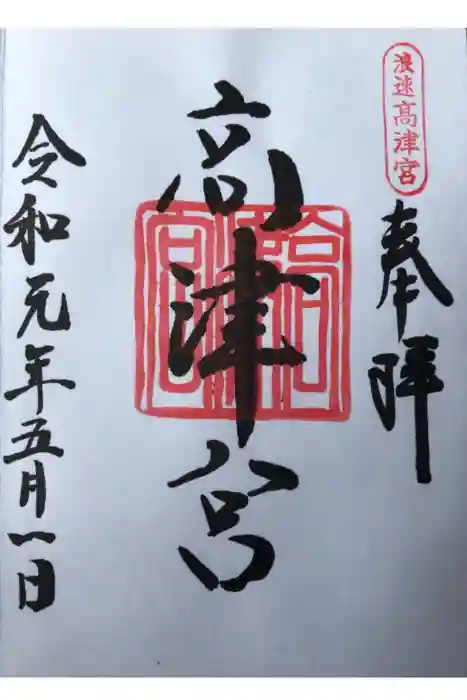 浪速高津宮
奉拝
高津宮
令和元年五月一日